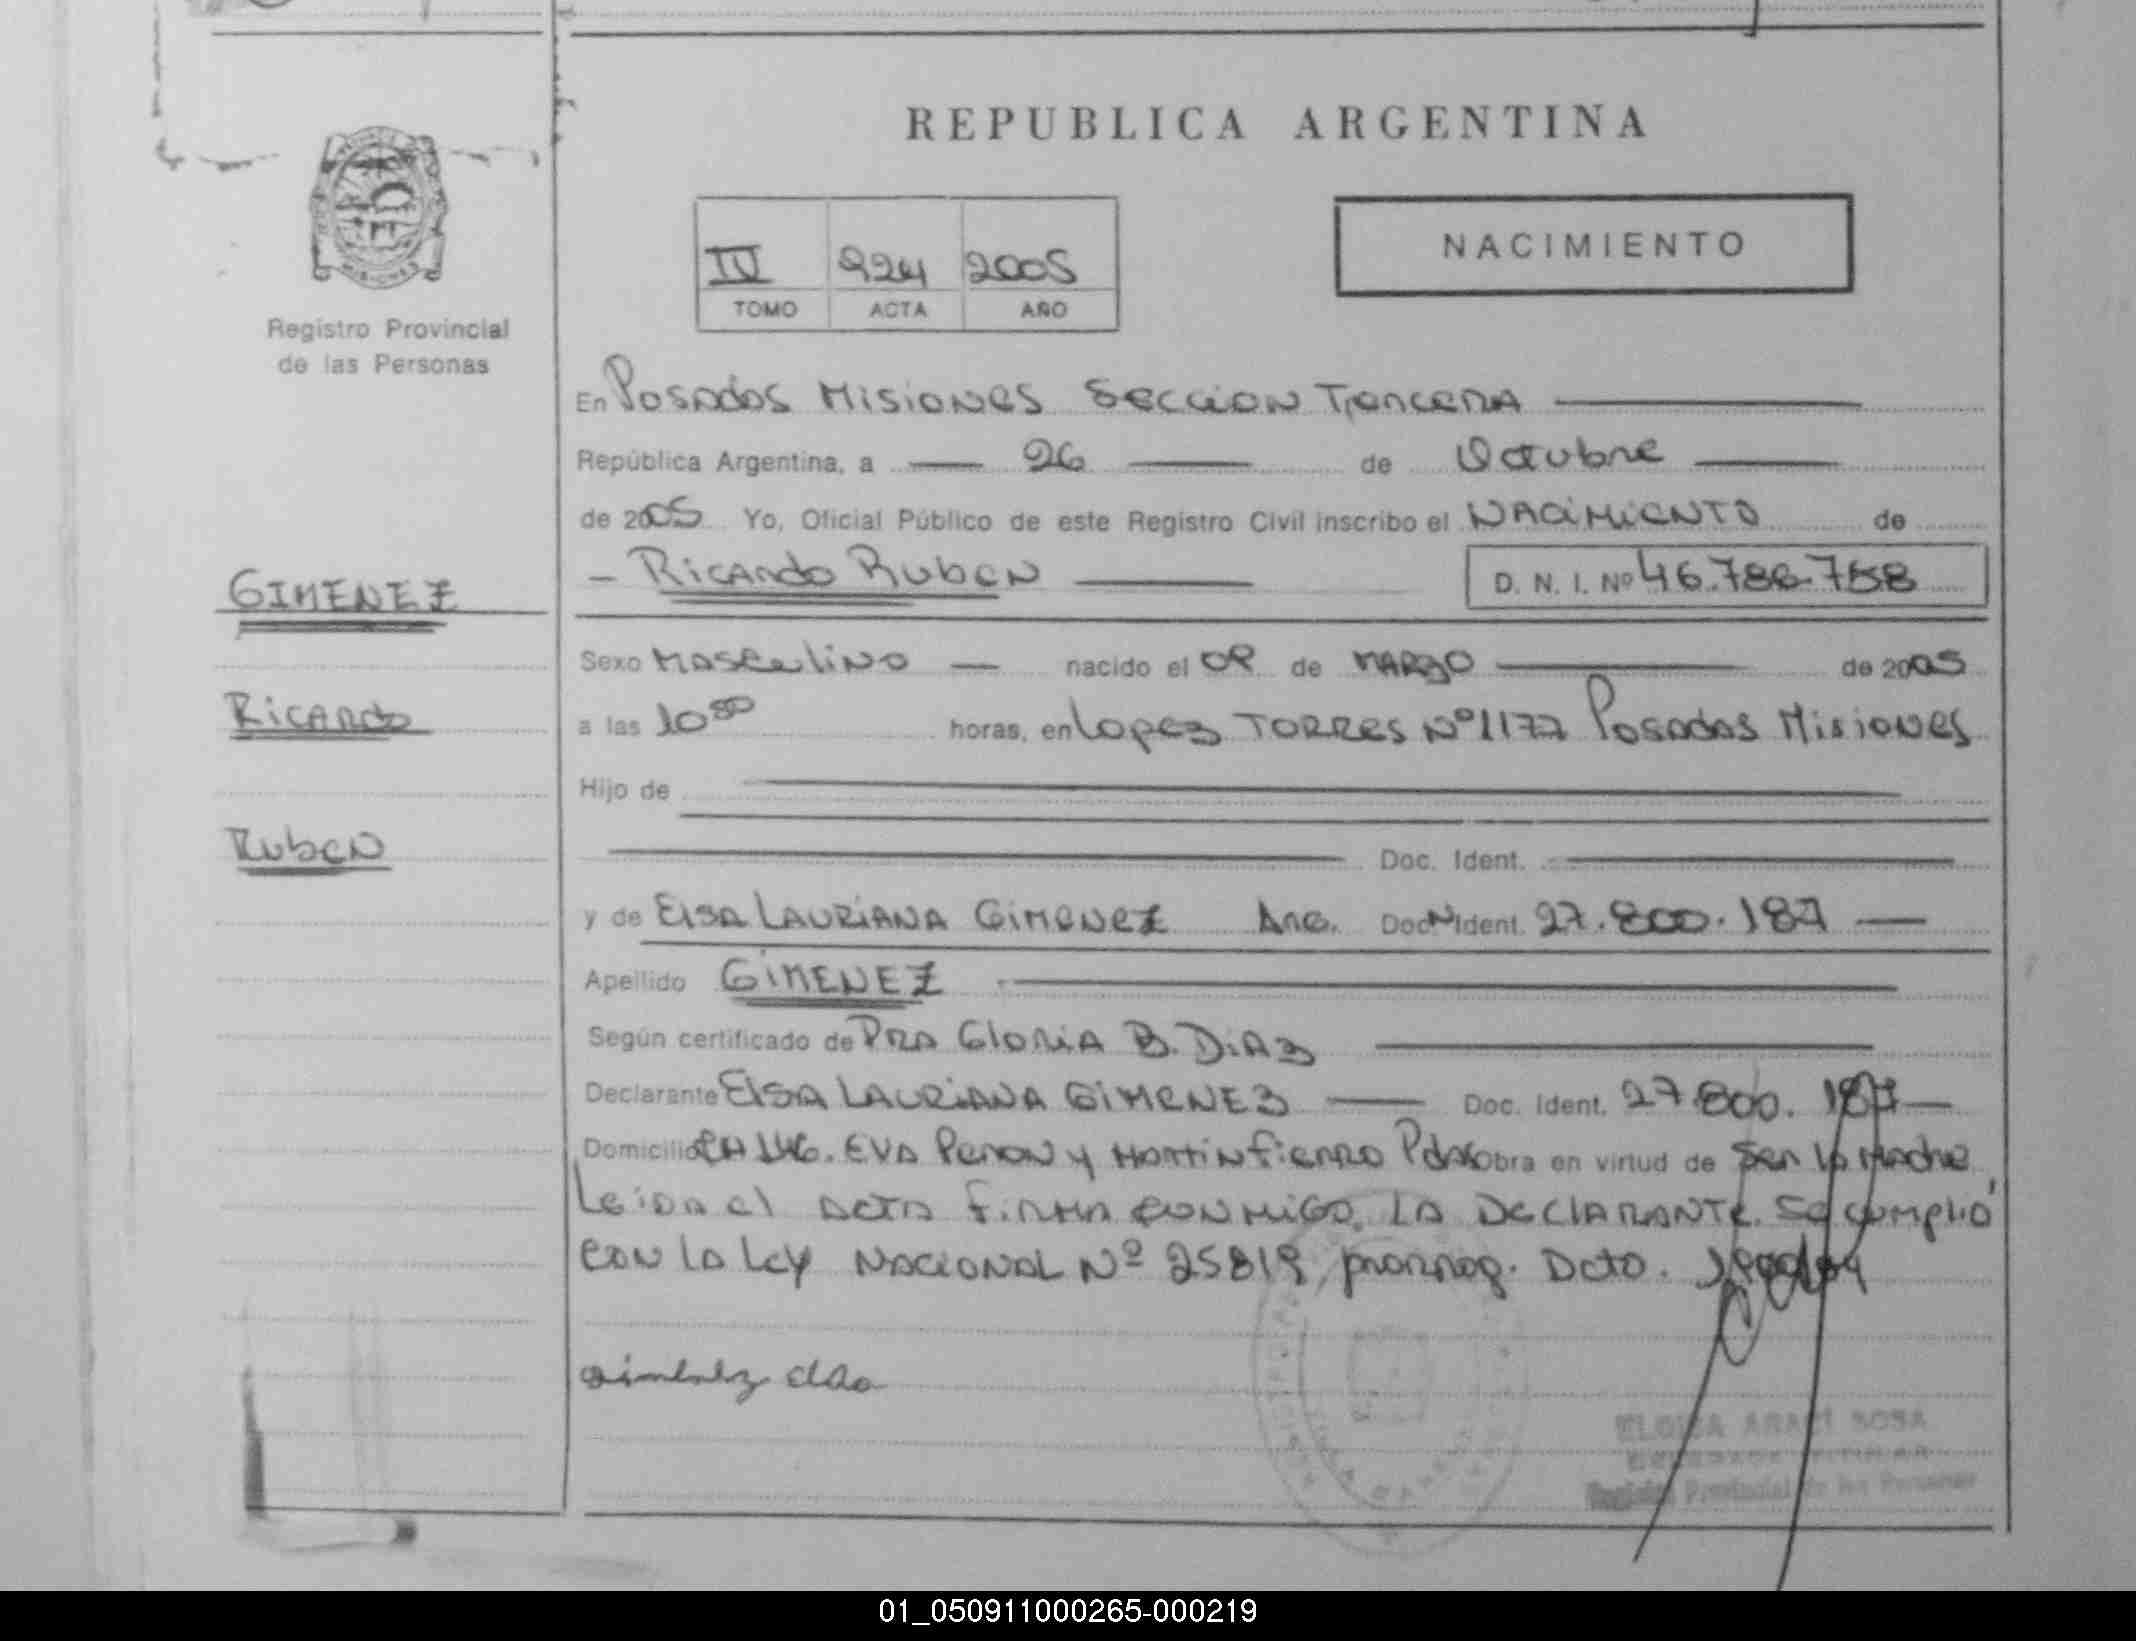 REPUBLICA ARGENTINA
NACIMIENTO
IV 924 2005
TOMO ACTA AÑO
Registro Provincial
de las Personas
En Posadas Misiones Seccion Tercera
República Argentina, a 26 de Octubre
de 2005 Yo, Oficial Público de este Registro Civil inscribo el NACIMIENTO de
Ricardo Ruben D. N. I. Nº 46.786.758
GIMENEZ
Ricardo
Ruben
Sexo Masculino nacido el 09 de MARZO de 2005
a las 10 50 horas, en Lopez TORRES Nº 1177 Posadas Misiones
Hijo de
Doc. Ident.
y de Elsa LAURIANA GIMENEZ Arg. Doc. Ident. 27.800.187
Apellido GIMENEZ
Según certificado de Dra Gloria B. DiAz
Declarante Elsa LAURIANA GIMENEZ Doc. Ident. 27.800.187
Domicilio CH 146. EVA Peron y Martin fierro Pdas obra en virtud de Ser la Madre
Leida el acta firma conmigo, LA DECLARANTE. Se cumplió
con la Ley NACIONAL Nº 25819, prorrog. Dcto.
ELOISA ARACÍ SOSA
Registro Provincial de las Personas
01_050911000265-000219